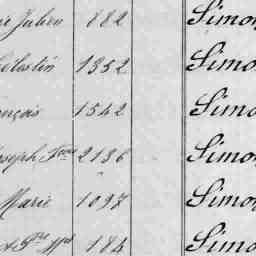 Julien 882 Simo
Célestin 1352 Simo
1542 Simo
Joseph 2136 Simo
Marie 1097 Simo
184 Simo